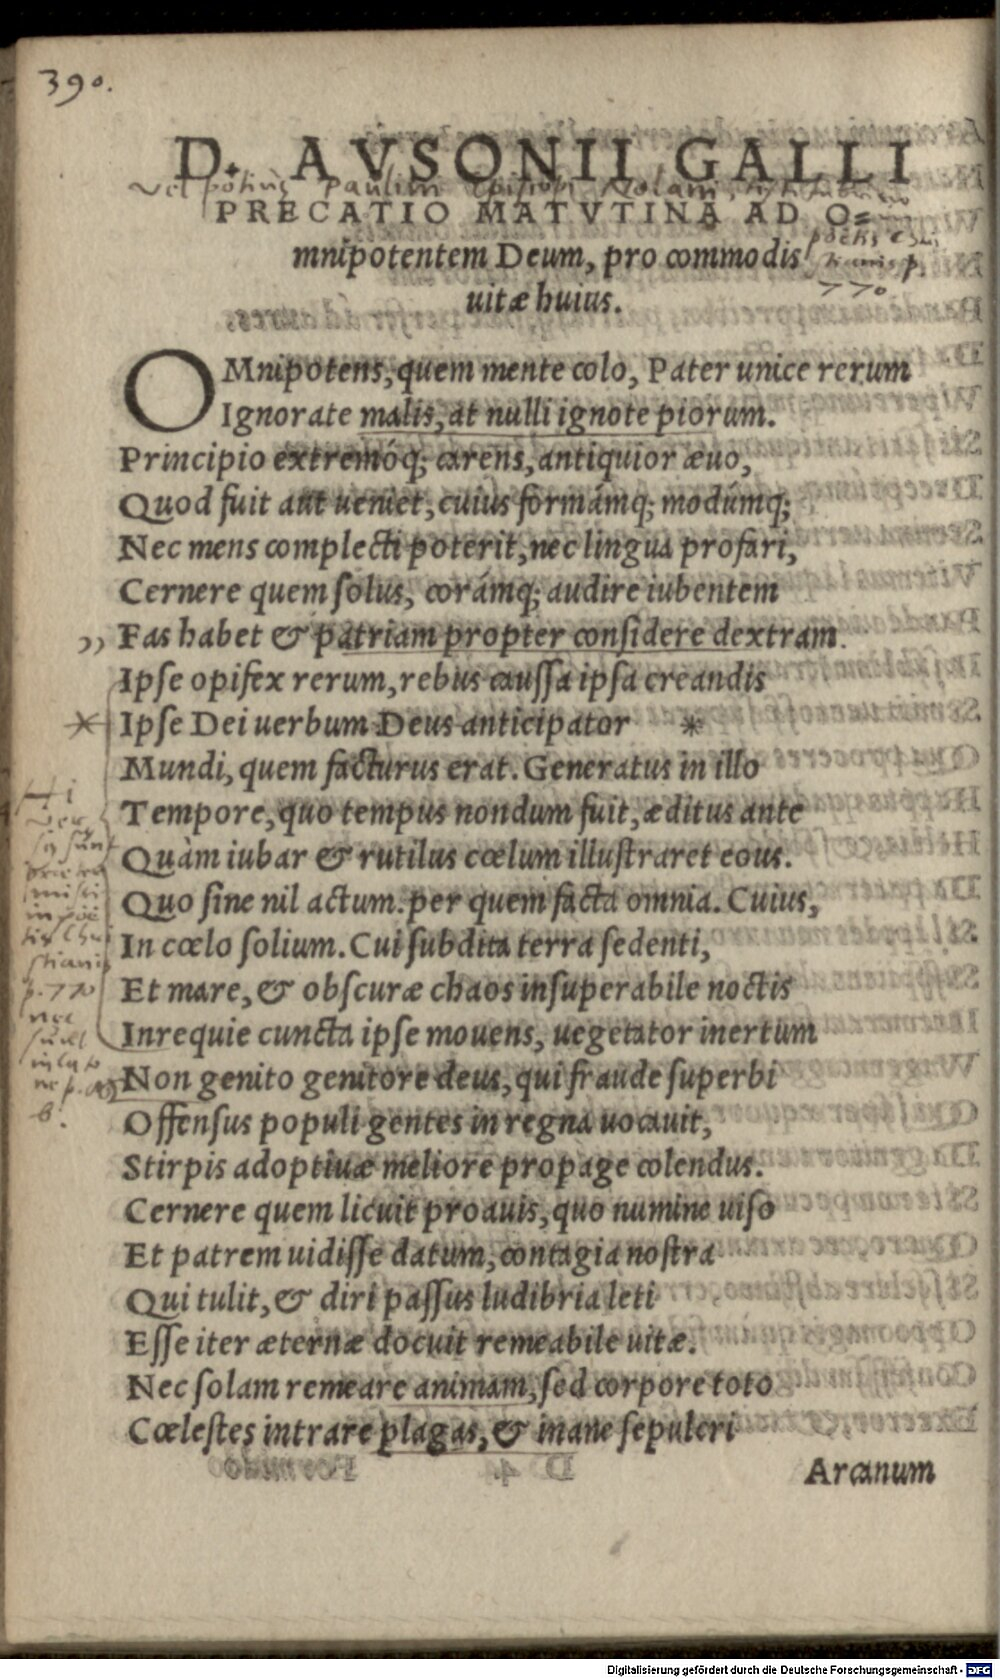 390.
D. AVSONII GALLI
Vel potius Paulini Episcopi Nolani
PRECATIO MATVTINA AD O=
mnipotentem Deum, pro commodis
uitæ huius.
p.
770
OMnipotens, quem mente colo, Pater unice rerum
Ignorate malis, at nulli ignote piorum.
Principio extremóq; carens, antiquior æuo,
Quod fuit aut ueniet, cuius formámq; modúmq;
Nec mens complecti poterit, nec lingua profari,
Cernere quem solus, corámq; audire iubentem
,, Fas habet & patriam propter considere dextram.
Ipse opifex rerum, rebus caussa ipsa creandis
* Ipse Dei uerbum Deus anticipator *
Mundi, quem facturus erat. Generatus in illo
Tempore, quo tempus nondum fuit, æditus ante
Quàm iubar & rutilus cœlum illustraret eous.
Quo sine nil actum. per quem facta omnia. Cuius,
In cœlo solium. Cui subdita terra sedenti,
Et mare, & obscuræ chaos insuperabile noctis
Inrequie cuncta ipse mouens, uegetator inertum
Non genito genitore deus, qui fraude superbi
Offensus populi gentes in regna uocauit,
Stirpis adoptiuæ meliore propage colendus.
Cernere quem licuit proauis, quo numine uiso
Et patrem uidisse datum, contagia nostra
Qui tulit, & diri passus ludibria leti
Esse iter æternæ docuit remeabile uitæ.
Nec solam remeare animam, sed corpore toto
Cœlestes intrare plagas, & inane sepulcri
Arcanum
Hi
sunt
in
stianis
p. 770
nec
Digitalisierung gefördert durch die Deutsche Forschungsgemeinschaft - DFG